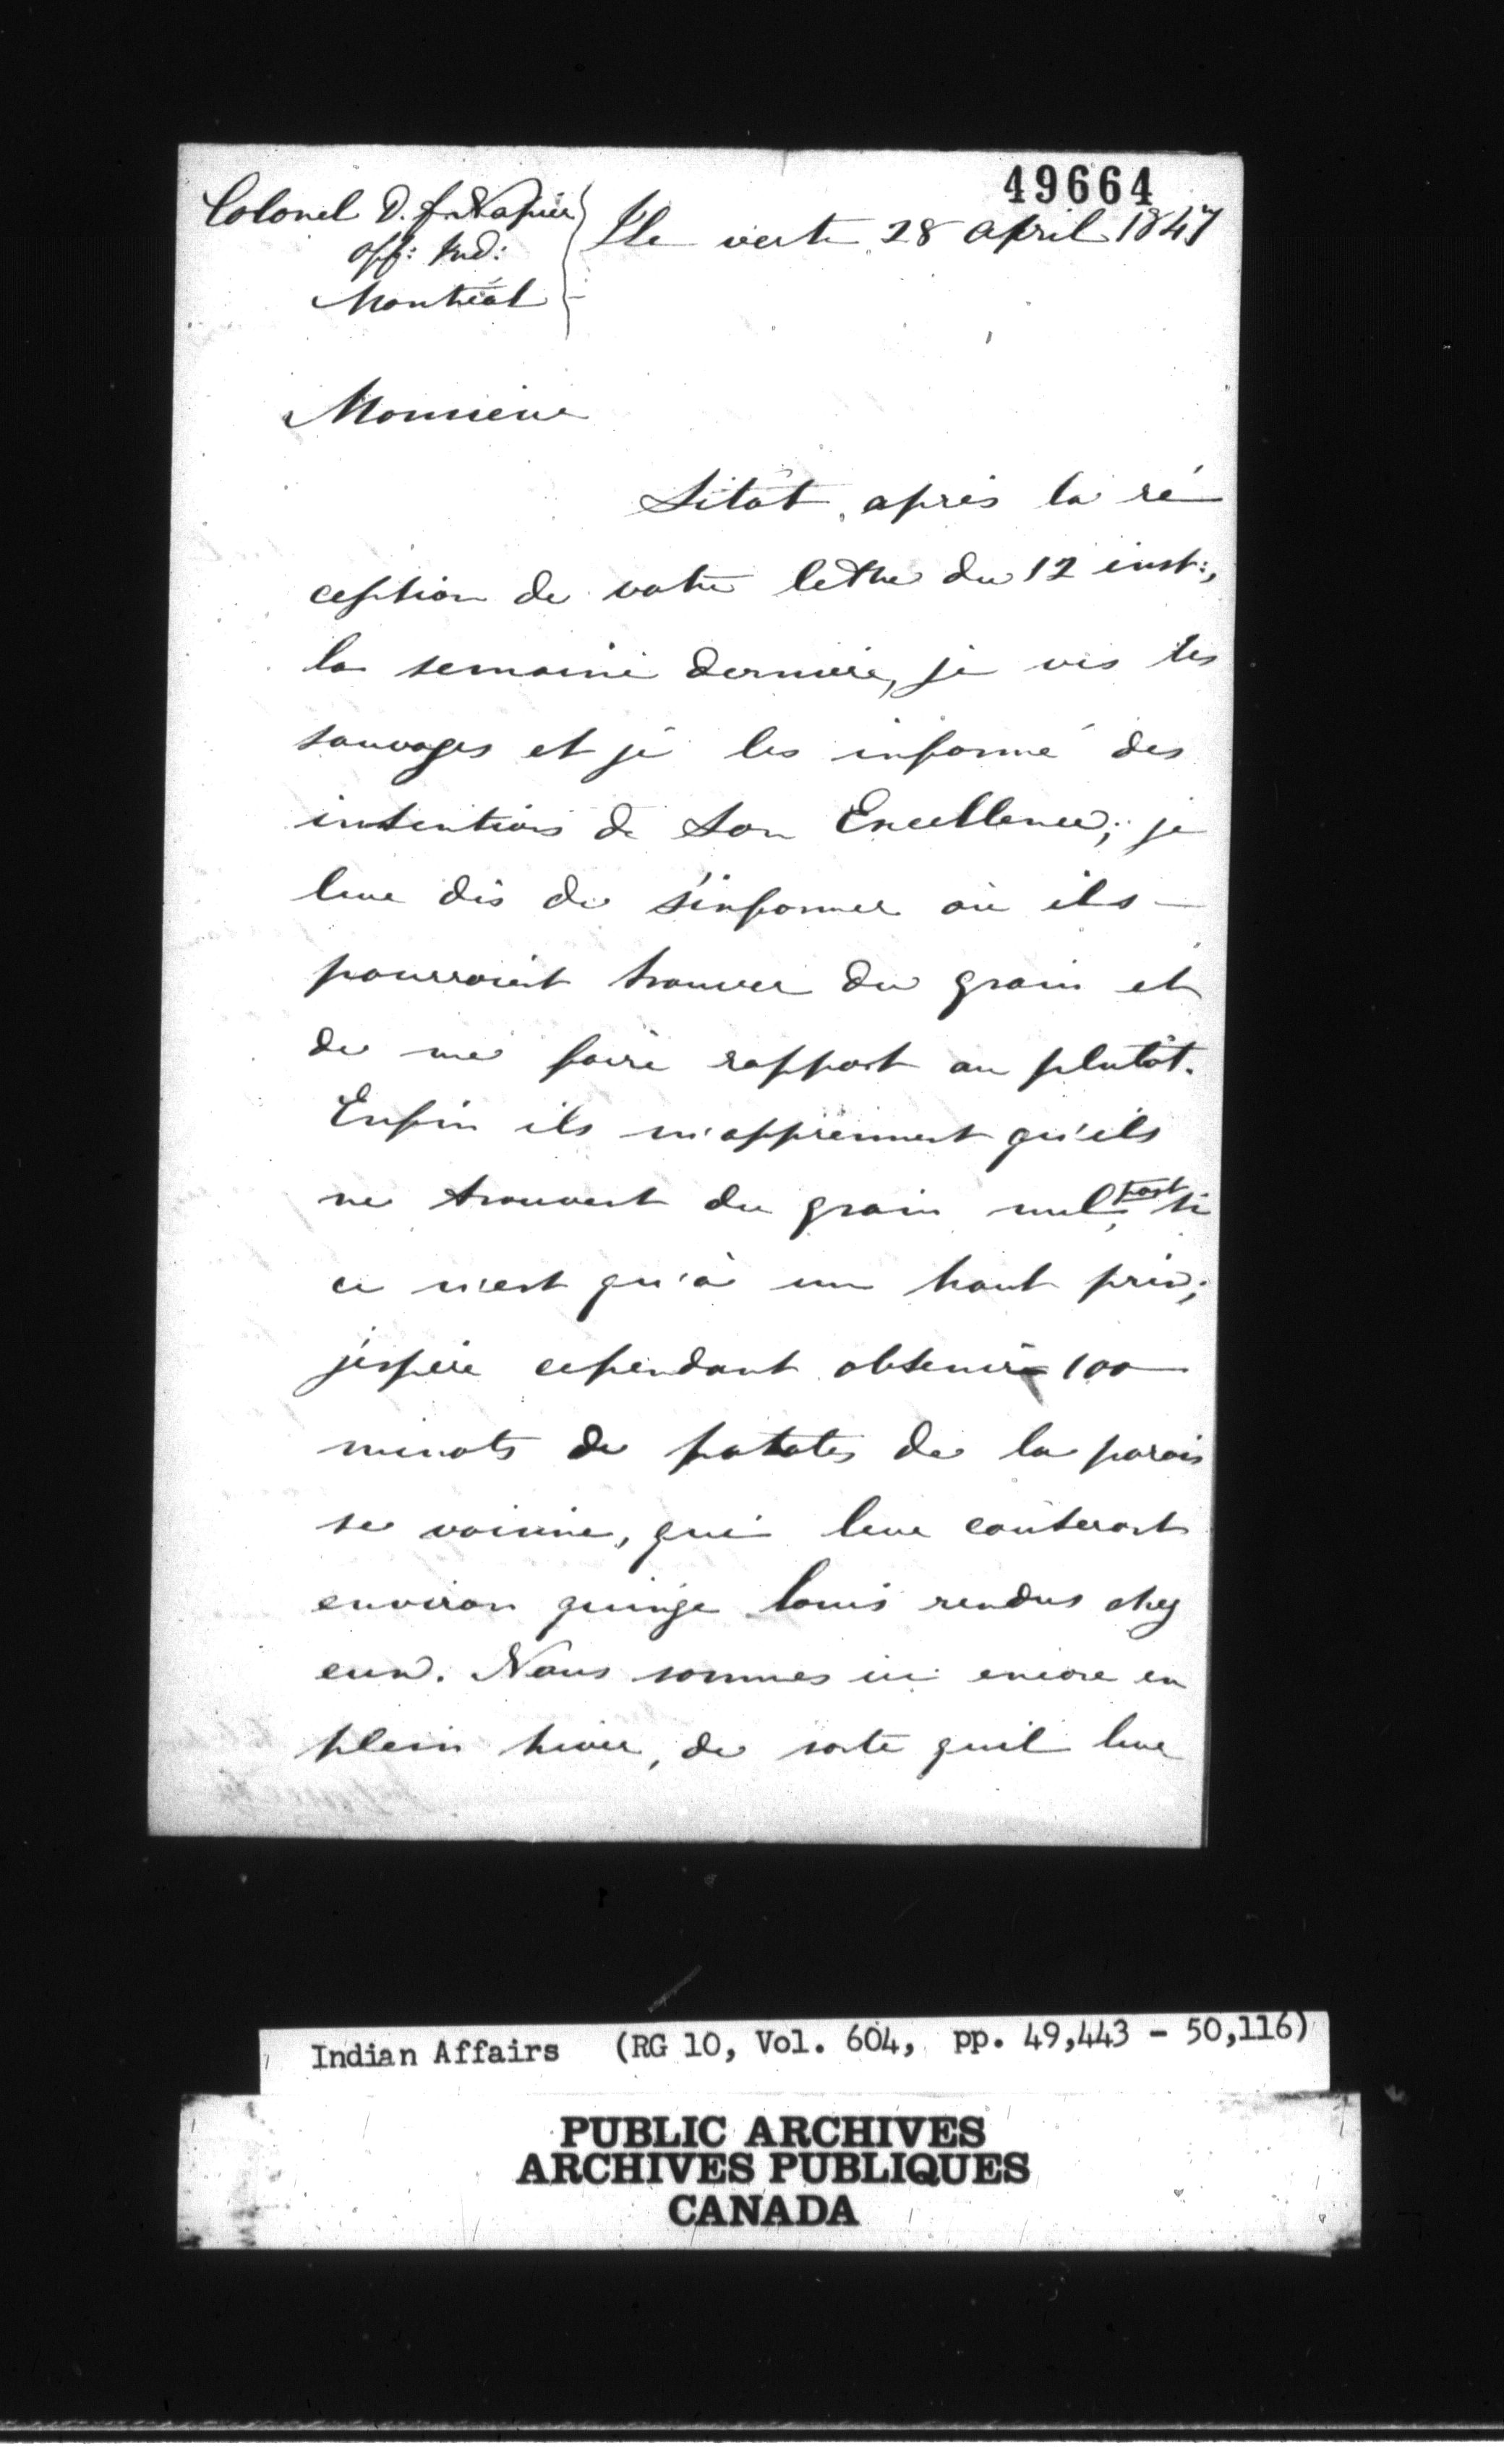 49664
Colonel D. C. Napier
Off: Ind:
Montréal
Ile verte 28 April 1847
Monsieur
Sitôt, après la ré
ception de votre lettre du 12 inst:,
la semaine dernière, je vis les
sauvages et je les informé des
intentions de Son Excellence; je
leur dis de s'informer où ils
pourroient trouver du grain et
de me faire rapport au plutôt.
Enfin ils m'apprennent qu'ils
ne trouvent du grain nul part, si
ce n'est qu'à un haut prix;
j'espère cependant obtenir 100
minots de patates de la parois
se voisine, qui leur couteront
environ quinze louis rendus chez
eux. Nous sommes ici encore en
plein hiver, de sorte quil leur
Indian Affairs (RG 10, Vol. 604, pp. 49,443 - 50,116)
PUBLIC ARCHIVES
ARCHIVES PUBLIQUES
CANADA